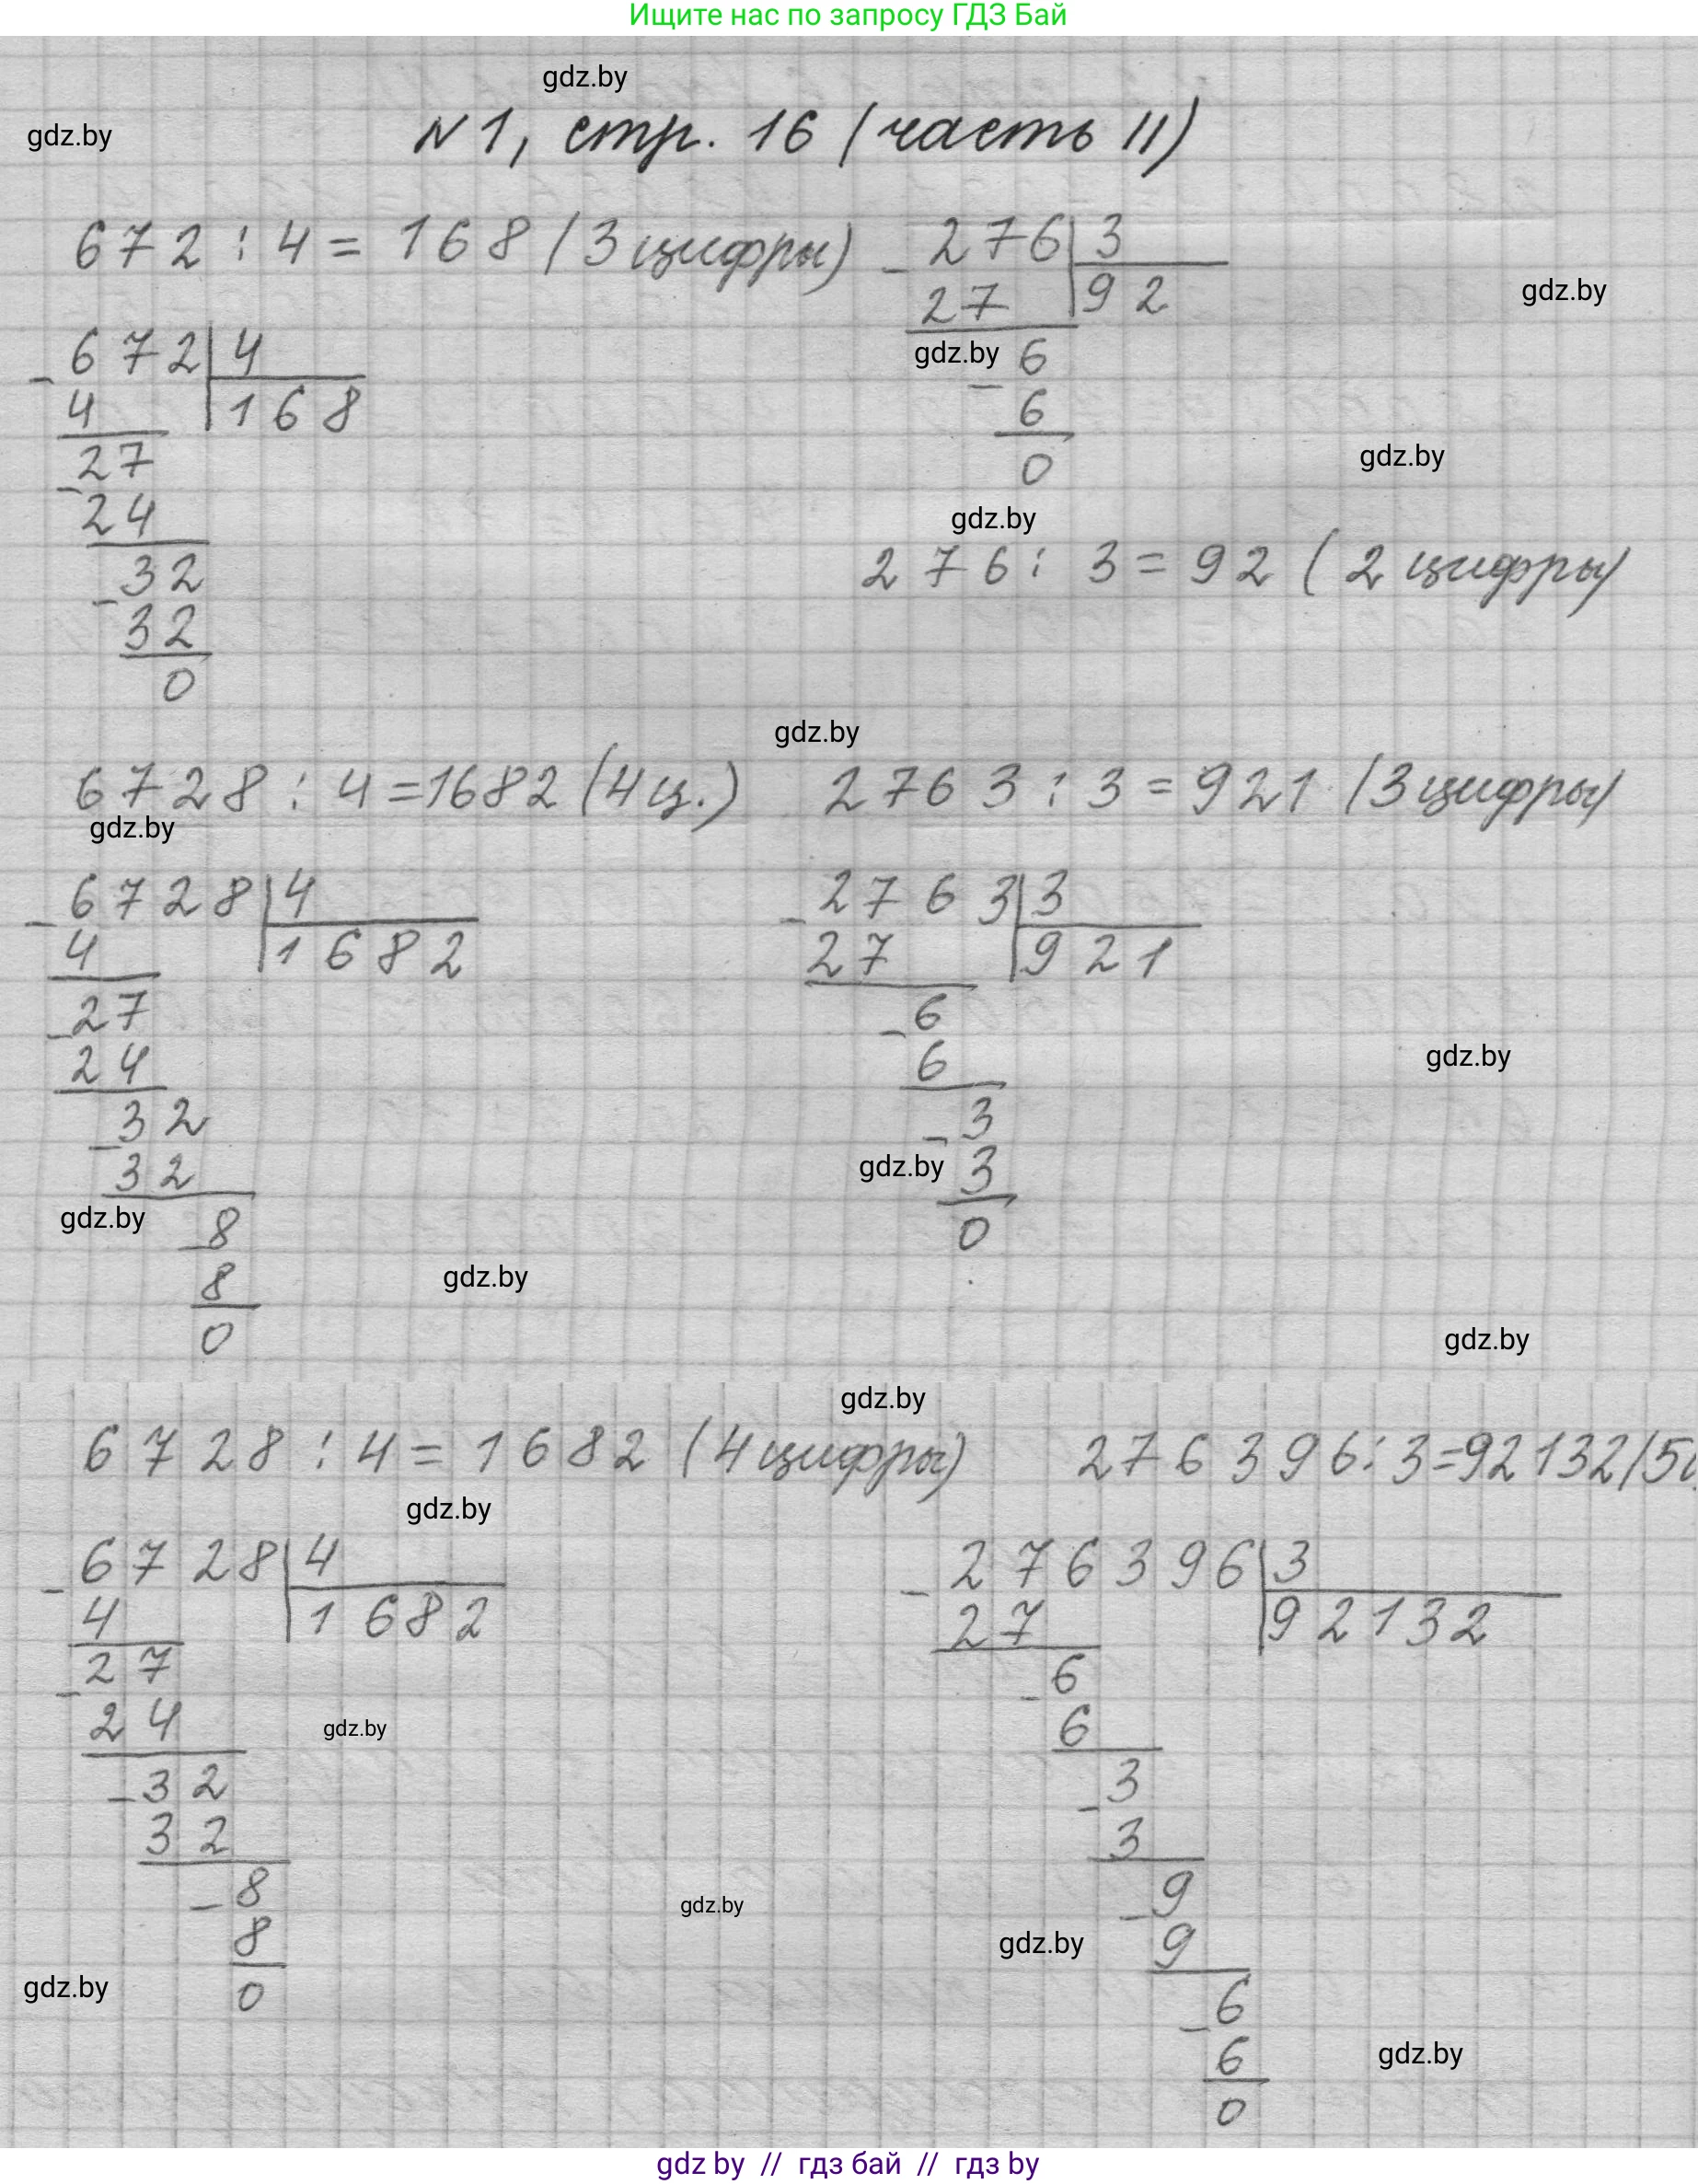 Ищите нас по запросу ГДЗ Бай
gdz.by
gdz.by
N1, стр. 16 (часть II)
672 : 4 = 168 (3 цифры)
- 672 | 4
4 | 168
- 27
24
- 32
32
0
- 276 | 3
27 | 92
gdz.by
gdz.by
- 6
6
0
gdz.by
gdz.by
276 : 3 = 92 (2 цифры)
gdz.by
6728 : 4 = 1682 (4 ц.)
gdz.by
- 6728 | 4
4 | 1682
- 27
24
- 32
32
gdz.by
- 8
8
0
gdz.by
2763 : 3 = 921 (3 цифры)
- 2763 | 3
27 | 921
- 6
6
gdz.by
- 3
gdz.by
3
0
gdz.by
gdz.by
6728 : 4 = 1682 (4 цифры)
gdz.by
- 6728 | 4
4 | 1682
- 27
24
gdz.by
- 32
32
- 8
8
gdz.by
0
gdz.by
276396 : 3 = 92132 (5ц.
- 276396 | 3
27 | 92132
- 6
6
- 3
3
- 9
gdz.by
9
- 6
6
gdz.by
0
gdz by // гдз бай // гдз by